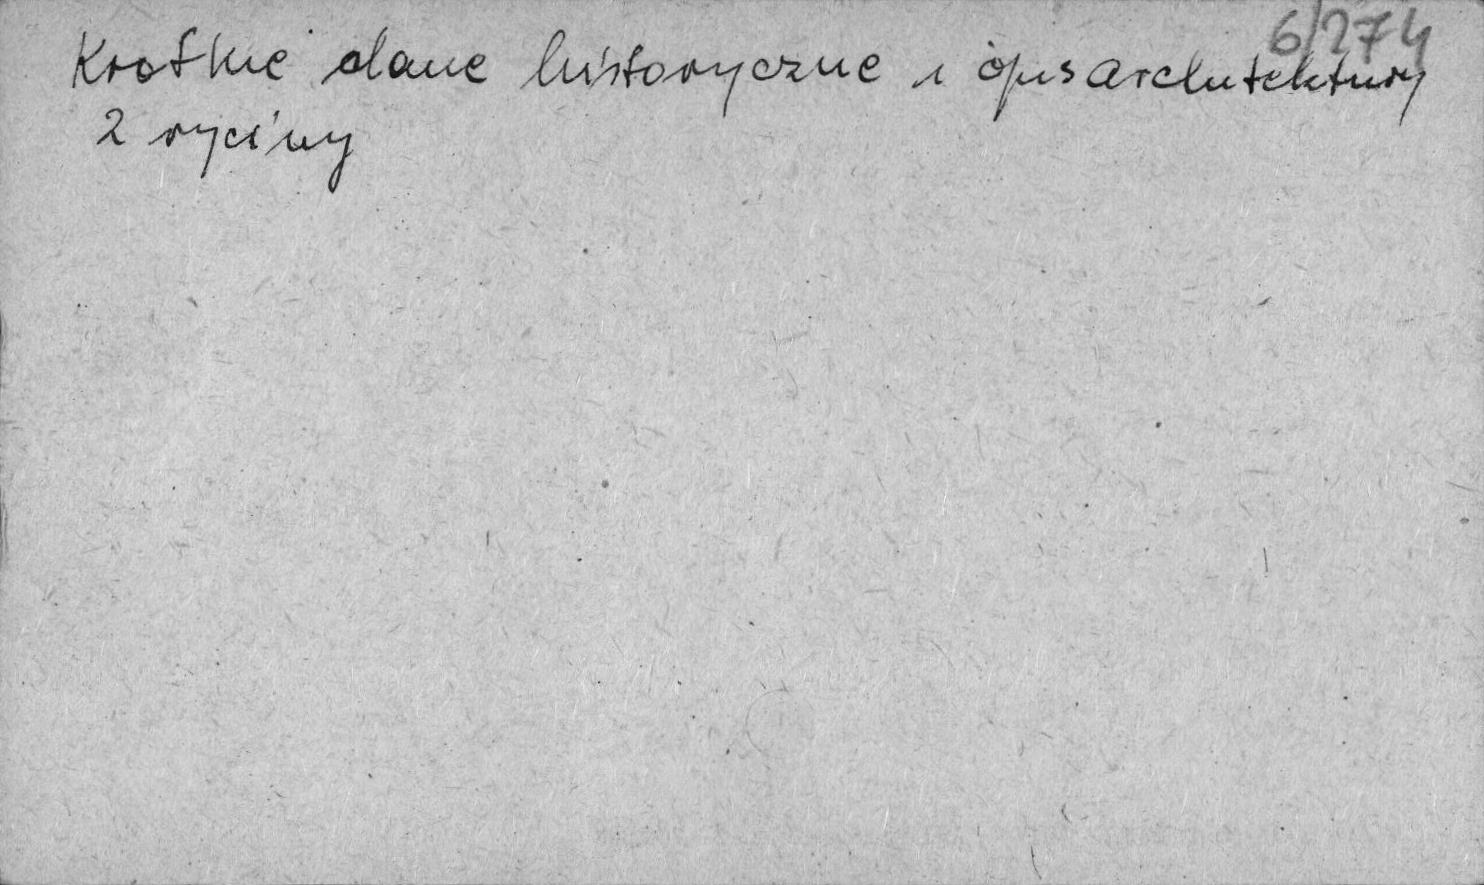 6/274
Krotkie dane historyczne i opis architektury
2 ryciny